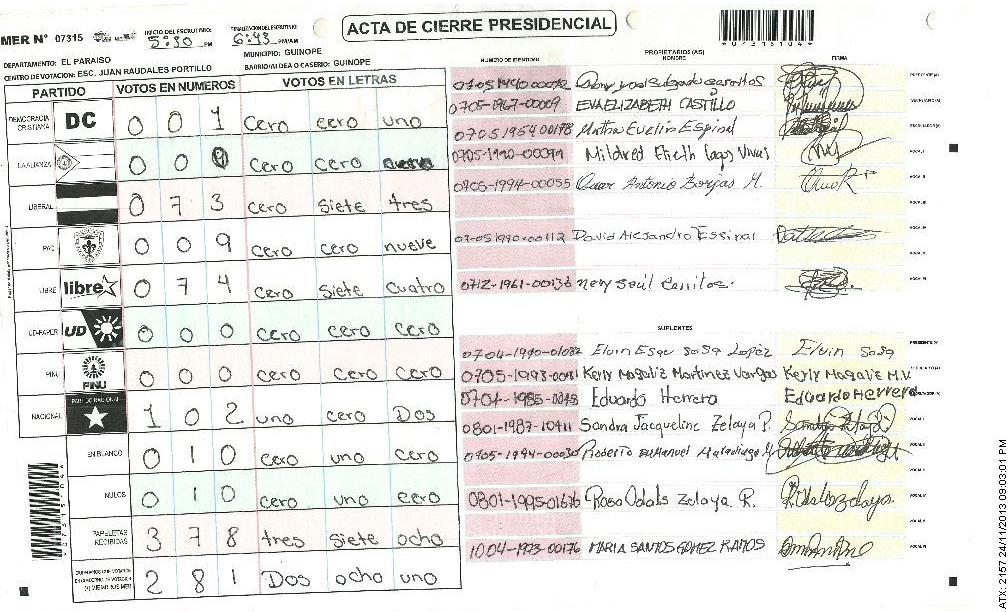 ACTA DE CIERRE PRESIDENCIAL
MER N° 07315
INICIO DEL ESCRUTINIO: 5:30 PM
FINALIZACION DEL ESCRUTINIO: 6:43 PM/AM
*07315104*
DEPARTAMENTO: EL PARAISO
MUNICIPIO: GUINOPE
CENTRO DE VOTACION: ESC. JUAN RAUDALES PORTILLO
BARRIO/ALDEA O CASERIO: GUINOPE
PARTIDO VOTOS EN NUMEROS VOTOS EN LETRAS
DEMOCRACIA CRISTIANA DC 0 0 1 cero cero uno
LA ALIANZA 0 0 cero cero
LIBERAL 0 7 3 cero siete tres
PAC 0 0 9 cero cero nueve
LIBRE libre 0 7 4 cero siete cuatro
UD-FAPER UD 0 0 0 cero cero cero
PINU PINU 0 0 0 cero cero cero
NACIONAL PARTIDO NACIONAL 1 0 2 uno cero Dos
EN BLANCO 0 1 0 cero uno cero
NULOS 0 1 0 cero uno cero
PAPELETAS RECIBIDAS 3 7 8 tres siete ocho
2 8 1 Dos ocho uno
NUMERO DE IDENTIDAD
PROPIETARIOS(AS)
NOMBRE
FIRMA
PRESIDENTE (A)
0705-1967-00009 EVA ELIZABETH CASTILLO SECRETARIO (A)
0705 1954 00178 Martha Evelin Espinal ESCRUTADOR (A)
Mildred Elieth Lagos Vivas VOCAL I
0703-1994-00055 Omar Antonio Borjas M. VOCAL II
VOCAL III
07-05 1990-00112 David Alejandro Espinal VOCAL IV
VOCAL V
0712-1961-00136 nery Saúl Cerritos. VOCAL VI
SUPLENTES
Elvin Esau Sosa Lopez Elvin Sosa PRESIDENTE (A)
Kerly Magaliz Martinez Vargas Kerly Magaliz M.V.
Eduardo Herrera Eduardo Herrera
0801-1987-10411 Sandra Jacqueline Zelaya P. VOCAL I
Roberto Emmanuel VOCAL II
VOCAL III
0801-1995-01676 Rosa Odalis Zelaya R. VOCAL IV
VOCAL V
1004-1973-00176 MARIA SANTOS GOMEZ RAMOS VOCAL VI
*07315104*
ATX: 2157 24/11/2013 09:03:01 PM